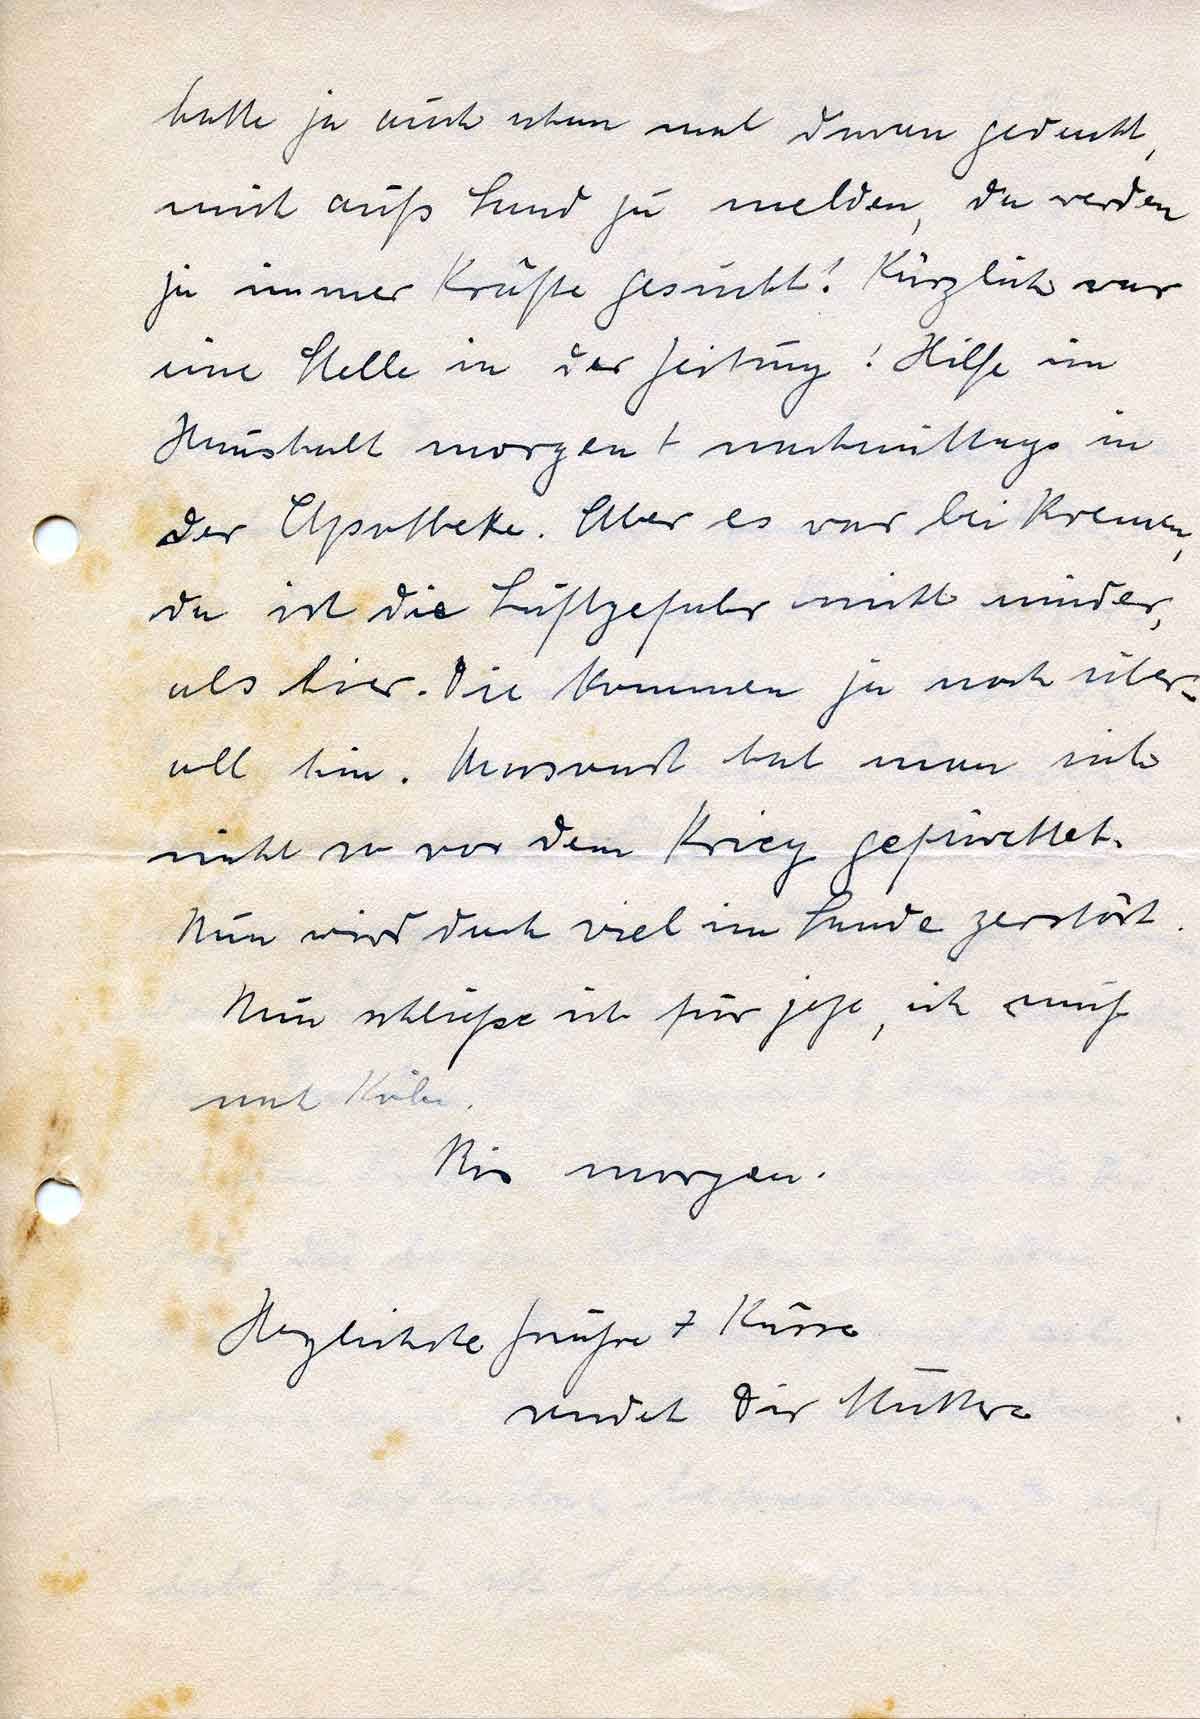 hatte ja auch schon mal daran gedacht,
mich aufs Land zu melden, da werden
ja immer Kräfte gesucht! Kürzlich war
eine Stelle in der Zeitung! Hilfe im
Haushalt morgen + nachmittags in
der Apotheke. Aber es war bei Bremen,
da ist die Luftgefahr nicht minder,
als hier. Die kommen ja noch über-
all hin. Umsonst hat man sich
nicht so vor dem Krieg gefürchtet.
Nun wird doch viel im Lande zerstört.
Nun schließe ich für jetzt, ich muß
nach Köln.
Bis morgen.
Herzlichste Grüße + Küsse
sendet Dir Mutter